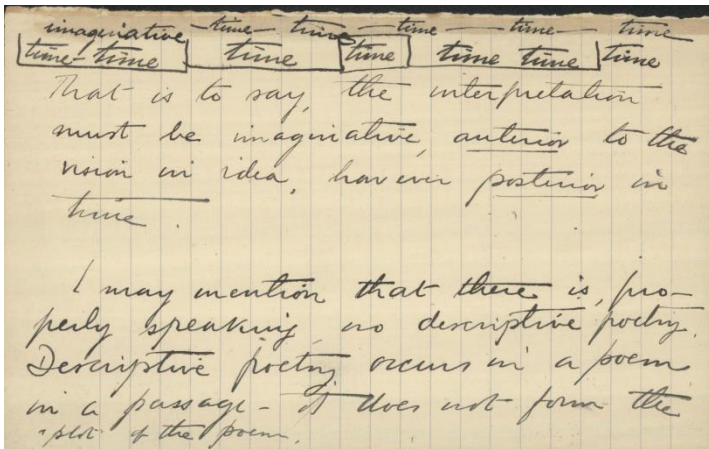 imaginative time time time time time
time-time time time time time time
That is to say, the interpretation
must be imaginative, anterior to the
vision in idea, however posterior in
time.
I may mention that there is, pro-
perly speaking, no descriptive poetry.
Descriptive poetry occurs in a poem
in a passage - it does not form the
"plot" of the poem.